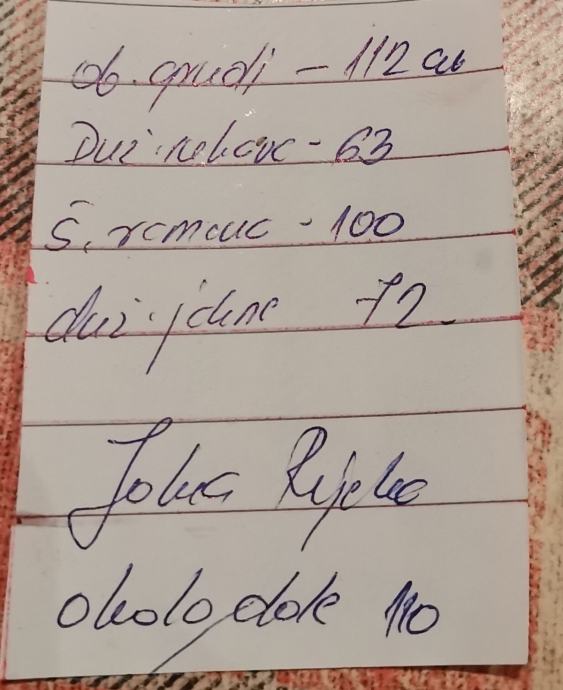 ob. grudi - 112 cm
Duž. rukav - 63
Š. ramena - 100
duž. jakne 72
Jakna Rijeka
okolo dole 110